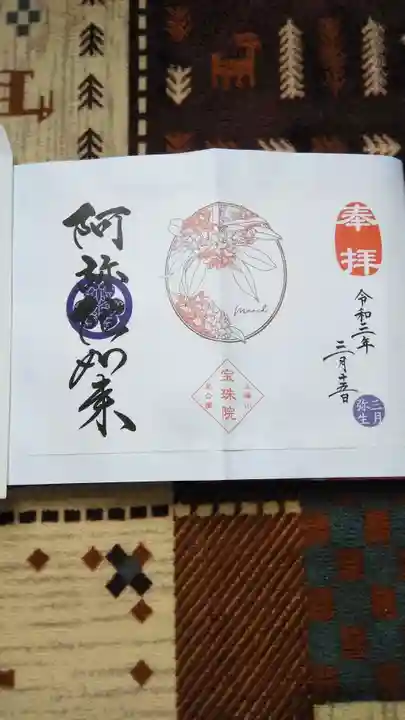 奉拝
令和二年
三月十五日
三月
弥生
March
宝珠院
阿弥陀如来